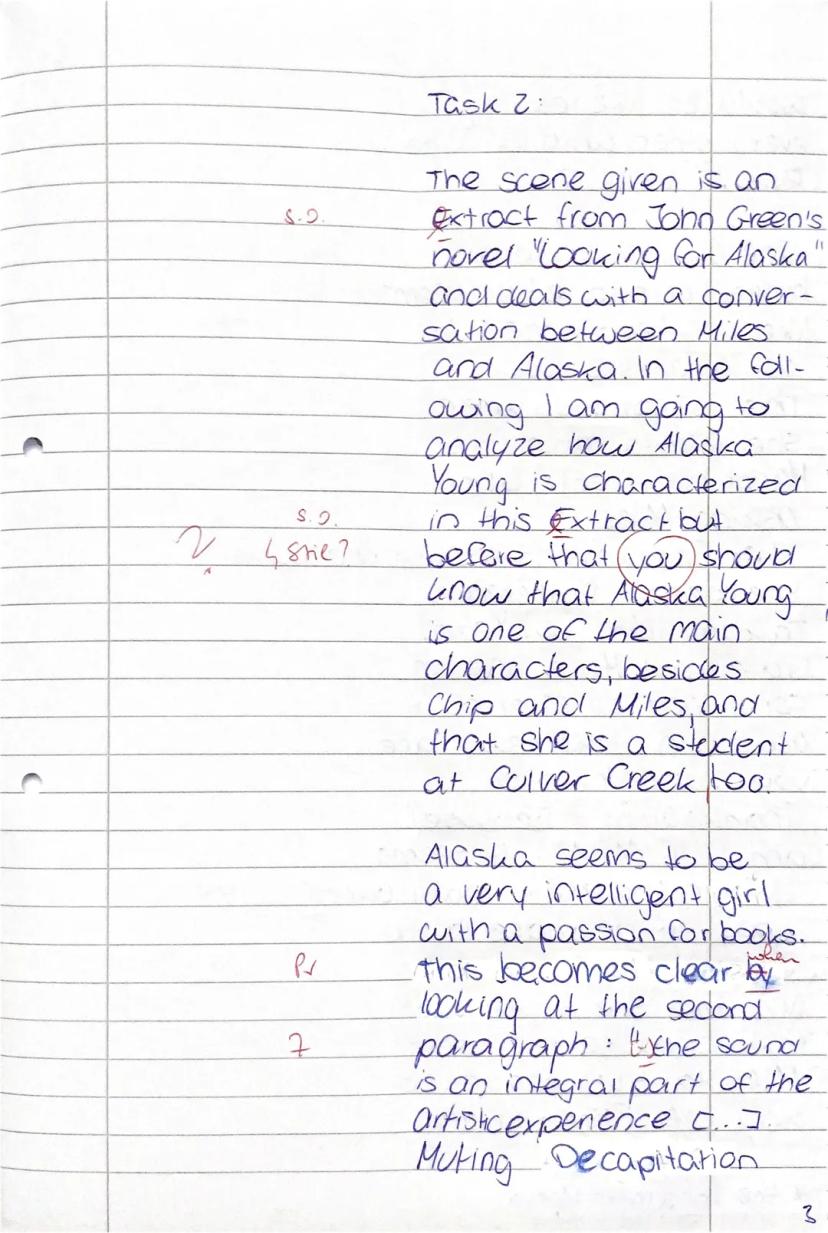 Task 2:
The scene given is an
s.o. Extract from John Green's
novel "Looking for Alaska"
and deals with a conver-
sation between Miles
and Alaska. In the foll-
owing I am going to
analyze how Alaska
Young is characterized
s.o. in this Extract but
? ↳ she? before that you should
know that Alaska Young
is one of the main
characters, besides
Chip and Miles, and
that she is a student
at Culver Creek too.
Alaska seems to be
a very intelligent girl
with a passion for books.
when
Pr This becomes clear by
looking at the second
paragraph: the sound
is an integral part of the
artistic experience [...].
Muting Decapitation
3